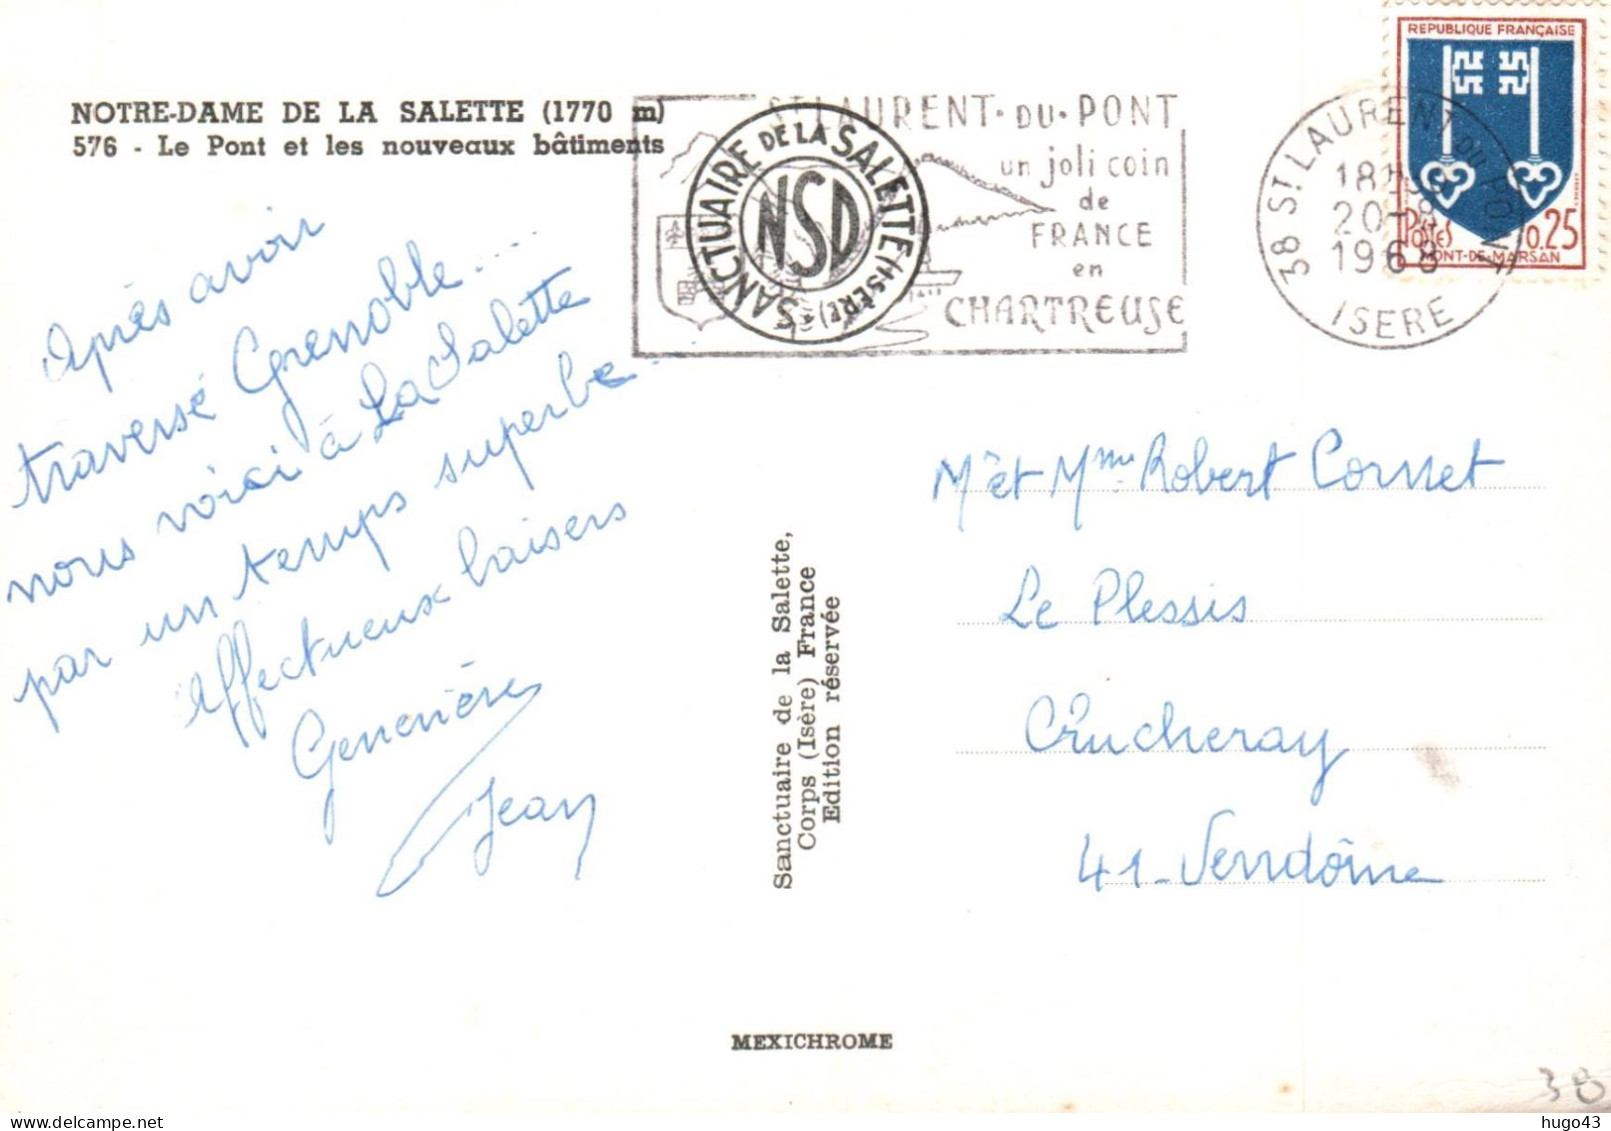 NOTRE-DAME DE LA SALETTE (1770 m)
576 - Le Pont et les nouveaux bâtiments
Après avoir
traversé Grenoble....
nous voici à La Salette
par un temps superbe.
Affectueux baisers
Geneviève
Jean
SANCTUAIRE DE LA SALETTE (ISÈRE)
NSD
ST LAURENT·DU·PONT
un joli coin
de
FRANCE
en
CHARTREUSE
38 ST LAURENT DU PONT
18H
20-8
1968
ISERE
REPUBLIQUE FRANÇAISE
Postes 0.25
MONT-DE-MARSAN
Sanctuaire de la Salette,
Corps (Isère) France
Edition réservée
Mr et Mme Robert Cornet
Le Plessis
Crucheray
41-Vendôme
MEXICHROME
38
hugo43